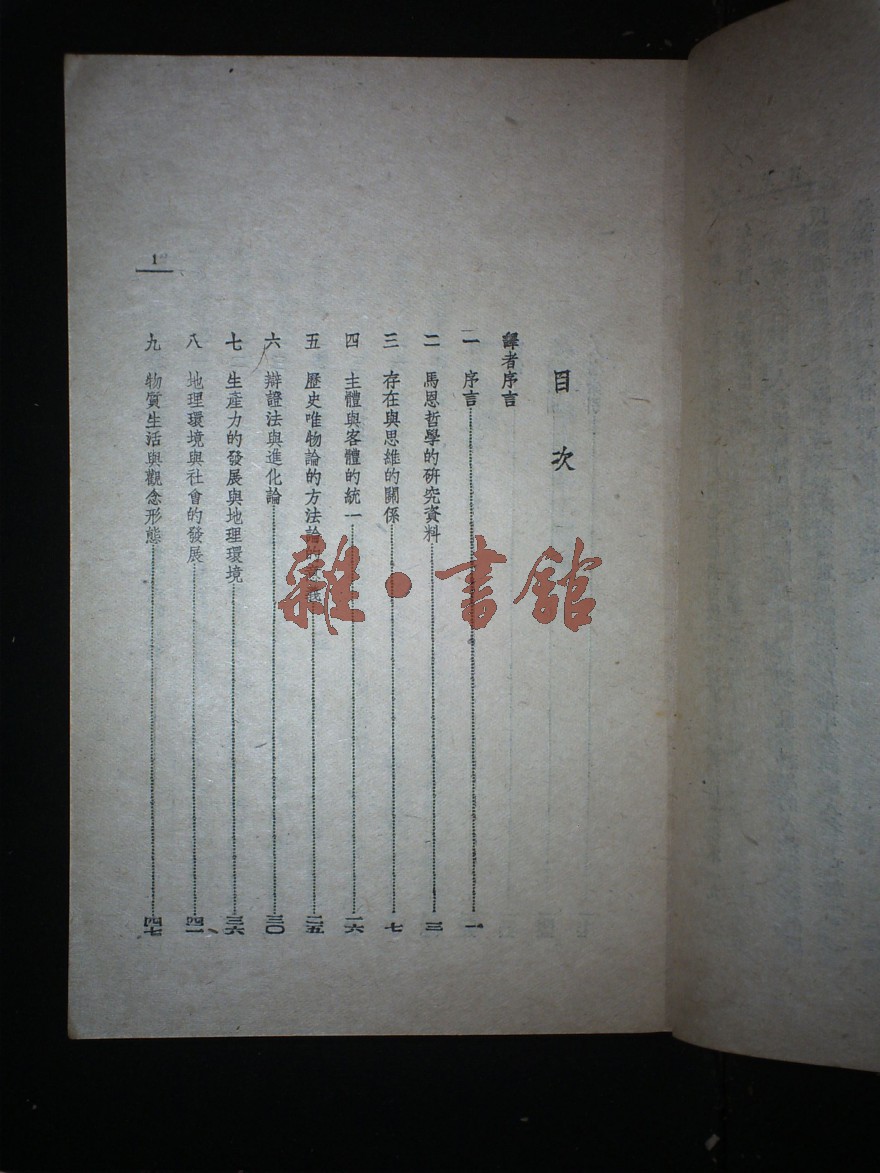 目次
譯者序言
一 序言 一
二 馬恩哲學的研究資料 三
三 存在與思維的關係 七
四 主體與客體的統一 一六
五 歷史唯物論的方法論的意義 二五
六 辯證法與進化論 三〇
七 生產力的發展與地理環境 三六
八 地理環境與社會的發展 四一
九 物質生活與觀念形態 四七
1
雜·書館